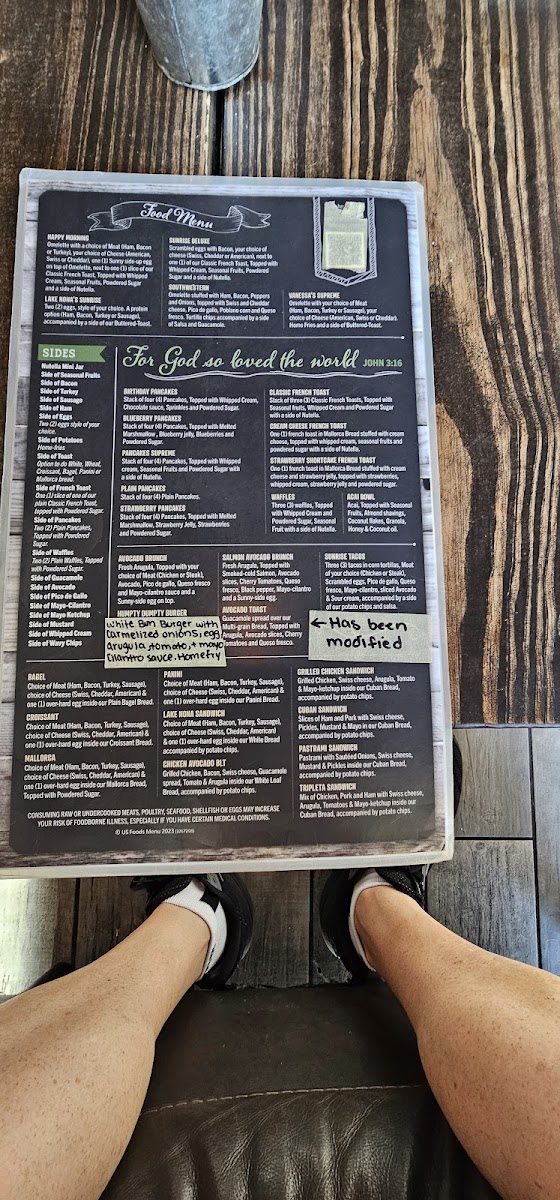 Food Menu
HAPPY MORNING
Omelette with a choice of Meat (Ham, Bacon
or Turkey), your choice of Cheese (American,
Swiss or Cheddar), one (1) Sunny side-up egg
on top of Omelette, next to one (1) slice of our
Classic French Toast, Topped with Whipped
Cream, Seasonal Fruits, Powdered Sugar
and a side of Nutella.
LAKE NONA'S SUNRISE
Two (2) eggs, style of your choice. A protein
option (Ham, Bacon, Turkey or Sausage),
accompanied by a side of our Buttered-Toast.
SUNRISE DELUXE
Scrambled eggs with Bacon, your choice of
cheese (Swiss, Cheddar or American), next to
one (1) of our Classic French Toast, Topped with
Whipped Cream, Seasonal Fruits, Powdered
Sugar and a side of Nutella.
SOUTHWESTERN
Omelette stuffed with Ham, Bacon, Peppers
and Onions, topped with Swiss and Cheddar
cheese, Pico de gallo, Poblano corn and Queso
fresco. Tortilla chips accompanied by a side
of Salsa and Guacamole.
VANESSA'S SUPREME
Omelette with your choice of Meat
(Ham, Bacon, Turkey or Sausage), your
choice of Cheese (American, Swiss or Cheddar).
Home Fries and a side of Buttered-Toast.
SIDES
Nutella Mini Jar
Side of Seasonal Fruits
Side of Bacon
Side of Turkey
Side of Sausage
Side of Ham
Side of Eggs
Two (2) eggs style of your
choice.
Side of Potatoes
Home-fries
Side of Toast
Option to do White, Wheat,
Croissant, Bagel, Panini or
Mallorca bread.
Side of French Toast
One (1) slice of one of our
plain Classic French Toast,
topped with Powdered Sugar.
Side of Pancakes
Two (2) Plain Pancakes,
Topped with Powdered
Sugar.
Side of Waffles
Two (2) Plain Waffles, Topped
with Powdered Sugar.
Side of Guacamole
Side of Avocado
Side of Pico de Gallo
Side of Mayo-Cilantro
Side of Mayo Ketchup
Side of Mustard
Side of Whipped Cream
Side of Wavy Chips
For God so loved the world JOHN 3:16
BIRTHDAY PANCAKES
Stack of four (4) Pancakes, Topped with Whipped Cream,
Chocolate sauce, Sprinkles and Powdered Sugar.
BLUEBERRY PANCAKES
Stack of four (4) Pancakes, Topped with Melted
Marshmallow, Blueberry jelly, Blueberries and
Powdered Sugar.
PANCAKES SUPREME
Stack of four (4) Pancakes, Topped with Whipped
cream, Seasonal Fruits and Powdered Sugar with
a side of Nutella.
PLAIN PANCAKES
Stack of four (4) Plain Pancakes.
STRAWBERRY PANCAKES
Stack of four (4) Pancakes, Topped with Melted
Marshmallow, Strawberry Jelly, Strawberries
and Powdered Sugar.
CLASSIC FRENCH TOAST
Stack of three (3) Classic French Toasts, Topped with
Seasonal fruits, Whipped Cream and Powdered Sugar
with a side of Nutella.
CREAM CHEESE FRENCH TOAST
One (1) french toast in Mallorca Bread stuffed with cream
cheese, topped with whipped cream, seasonal fruits and
powdered sugar with a side of Nutella.
STRAWBERRY SHORTCAKE FRENCH TOAST
One (1) french toast in Mallorca Bread stuffed with cream
cheese and strawberry jelly, topped with strawberries,
whipped cream, strawberry jelly and powdered sugar.
WAFFLES
Three (3) waffles, Topped
with Whipped Cream and
Powdered Sugar, Seasonal
Fruit with a side of Nutella.
ACAI BOWL
Acai, Topped with Seasonal
Fruits, Almond shavings,
Coconut flakes, Granola,
Honey & Coconut oil.
AVOCADO BRUNCH
Fresh Arugula, Topped with your
choice of Meat (Chicken or Steak),
Avocado, Pico de gallo, Queso fresco
and Mayo-cilantro sauce and a
Sunny-side egg on top.
HUMPTY DUMPTY BURGER
White Bun Burger with
Carmelized onions, egg
arugula, tomato, + mayo
Cilantro sauce. Homefry
SALMON AVOCADO BRUNCH
Fresh Arugula, Topped with
Smoked-cold Salmon, Avocado
slices, Cherry Tomatoes, Queso
fresco, Black pepper, Mayo-cilantro
and a Sunny-side egg.
AVOCADO TOAST
Guacamole spread over our
Multi-grain Bread, Topped with
Arugula, Avocado slices, Cherry
Tomatoes and Queso fresco.
SUNRISE TACOS
Three (3) tacos in corn tortillas, Meat
of your choice (Chicken or Steak),
Scrambled eggs, Pico de gallo, Queso
fresco, Mayo-cilantro, sliced Avocado
& Sour cream, accompanied by a side
of our potato chips and salsa.
← Has been
modified
BAGEL
Choice of Meat (Ham, Bacon, Turkey, Sausage),
choice of Cheese (Swiss, Cheddar, American) &
one (1) over-hard egg inside our Plain Bagel Bread.
CROISSANT
Choice of Meat (Ham, Bacon, Turkey, Sausage),
choice of Cheese (Swiss, Cheddar, American) &
one (1) over-hard egg inside our Croissant Bread.
MALLORCA
Choice of Meat (Ham, Bacon, Turkey, Sausage),
choice of Cheese (Swiss, Cheddar, American) &
one (1) over-hard egg inside our Mallorca Bread,
Topped with Powdered Sugar.
PANINI
Choice of Meat (Ham, Bacon, Turkey, Sausage),
choice of Cheese (Swiss, Cheddar, American) &
one (1) over-hard egg inside our Panini Bread.
LAKE NONA SANDWICH
Choice of Meat (Ham, Bacon, Turkey, Sausage),
choice of Cheese (Swiss, Cheddar, American) &
one (1) over-hard egg inside our White Bread
accompanied by potato chips.
CHICKEN AVOCADO BLT
Grilled Chicken, Bacon, Swiss cheese, Guacamole
spread, Tomato & Arugula inside our White Loaf
Bread, accompanied by potato chips.
GRILLED CHICKEN SANDWICH
Grilled Chicken, Swiss cheese, Arugula, Tomato
& Mayo-ketchup inside our Cuban Bread,
accompanied by potato chips.
CUBAN SANDWICH
Slices of Ham and Pork with Swiss cheese,
Pickles, Mustard & Mayo in our Cuban Bread,
accompanied by potato chips.
PASTRAMI SANDWICH
Pastrami with Sautéed Onions, Swiss cheese,
Mustard & Pickles inside our Cuban Bread,
accompanied by potato chips.
TRIPLETA SANDWICH
Mix of Chicken, Pork and Ham with Swiss cheese,
Arugula, Tomatoes & Mayo-ketchup inside our
Cuban Bread, accompanied by potato chips.
CONSUMING RAW OR UNDERCOOKED MEATS, POULTRY, SEAFOOD, SHELLFISH OR EGGS MAY INCREASE
YOUR RISK OF FOODBORNE ILLNESS, ESPECIALLY IF YOU HAVE CERTAIN MEDICAL CONDITIONS.
© US Foods Menu 2023